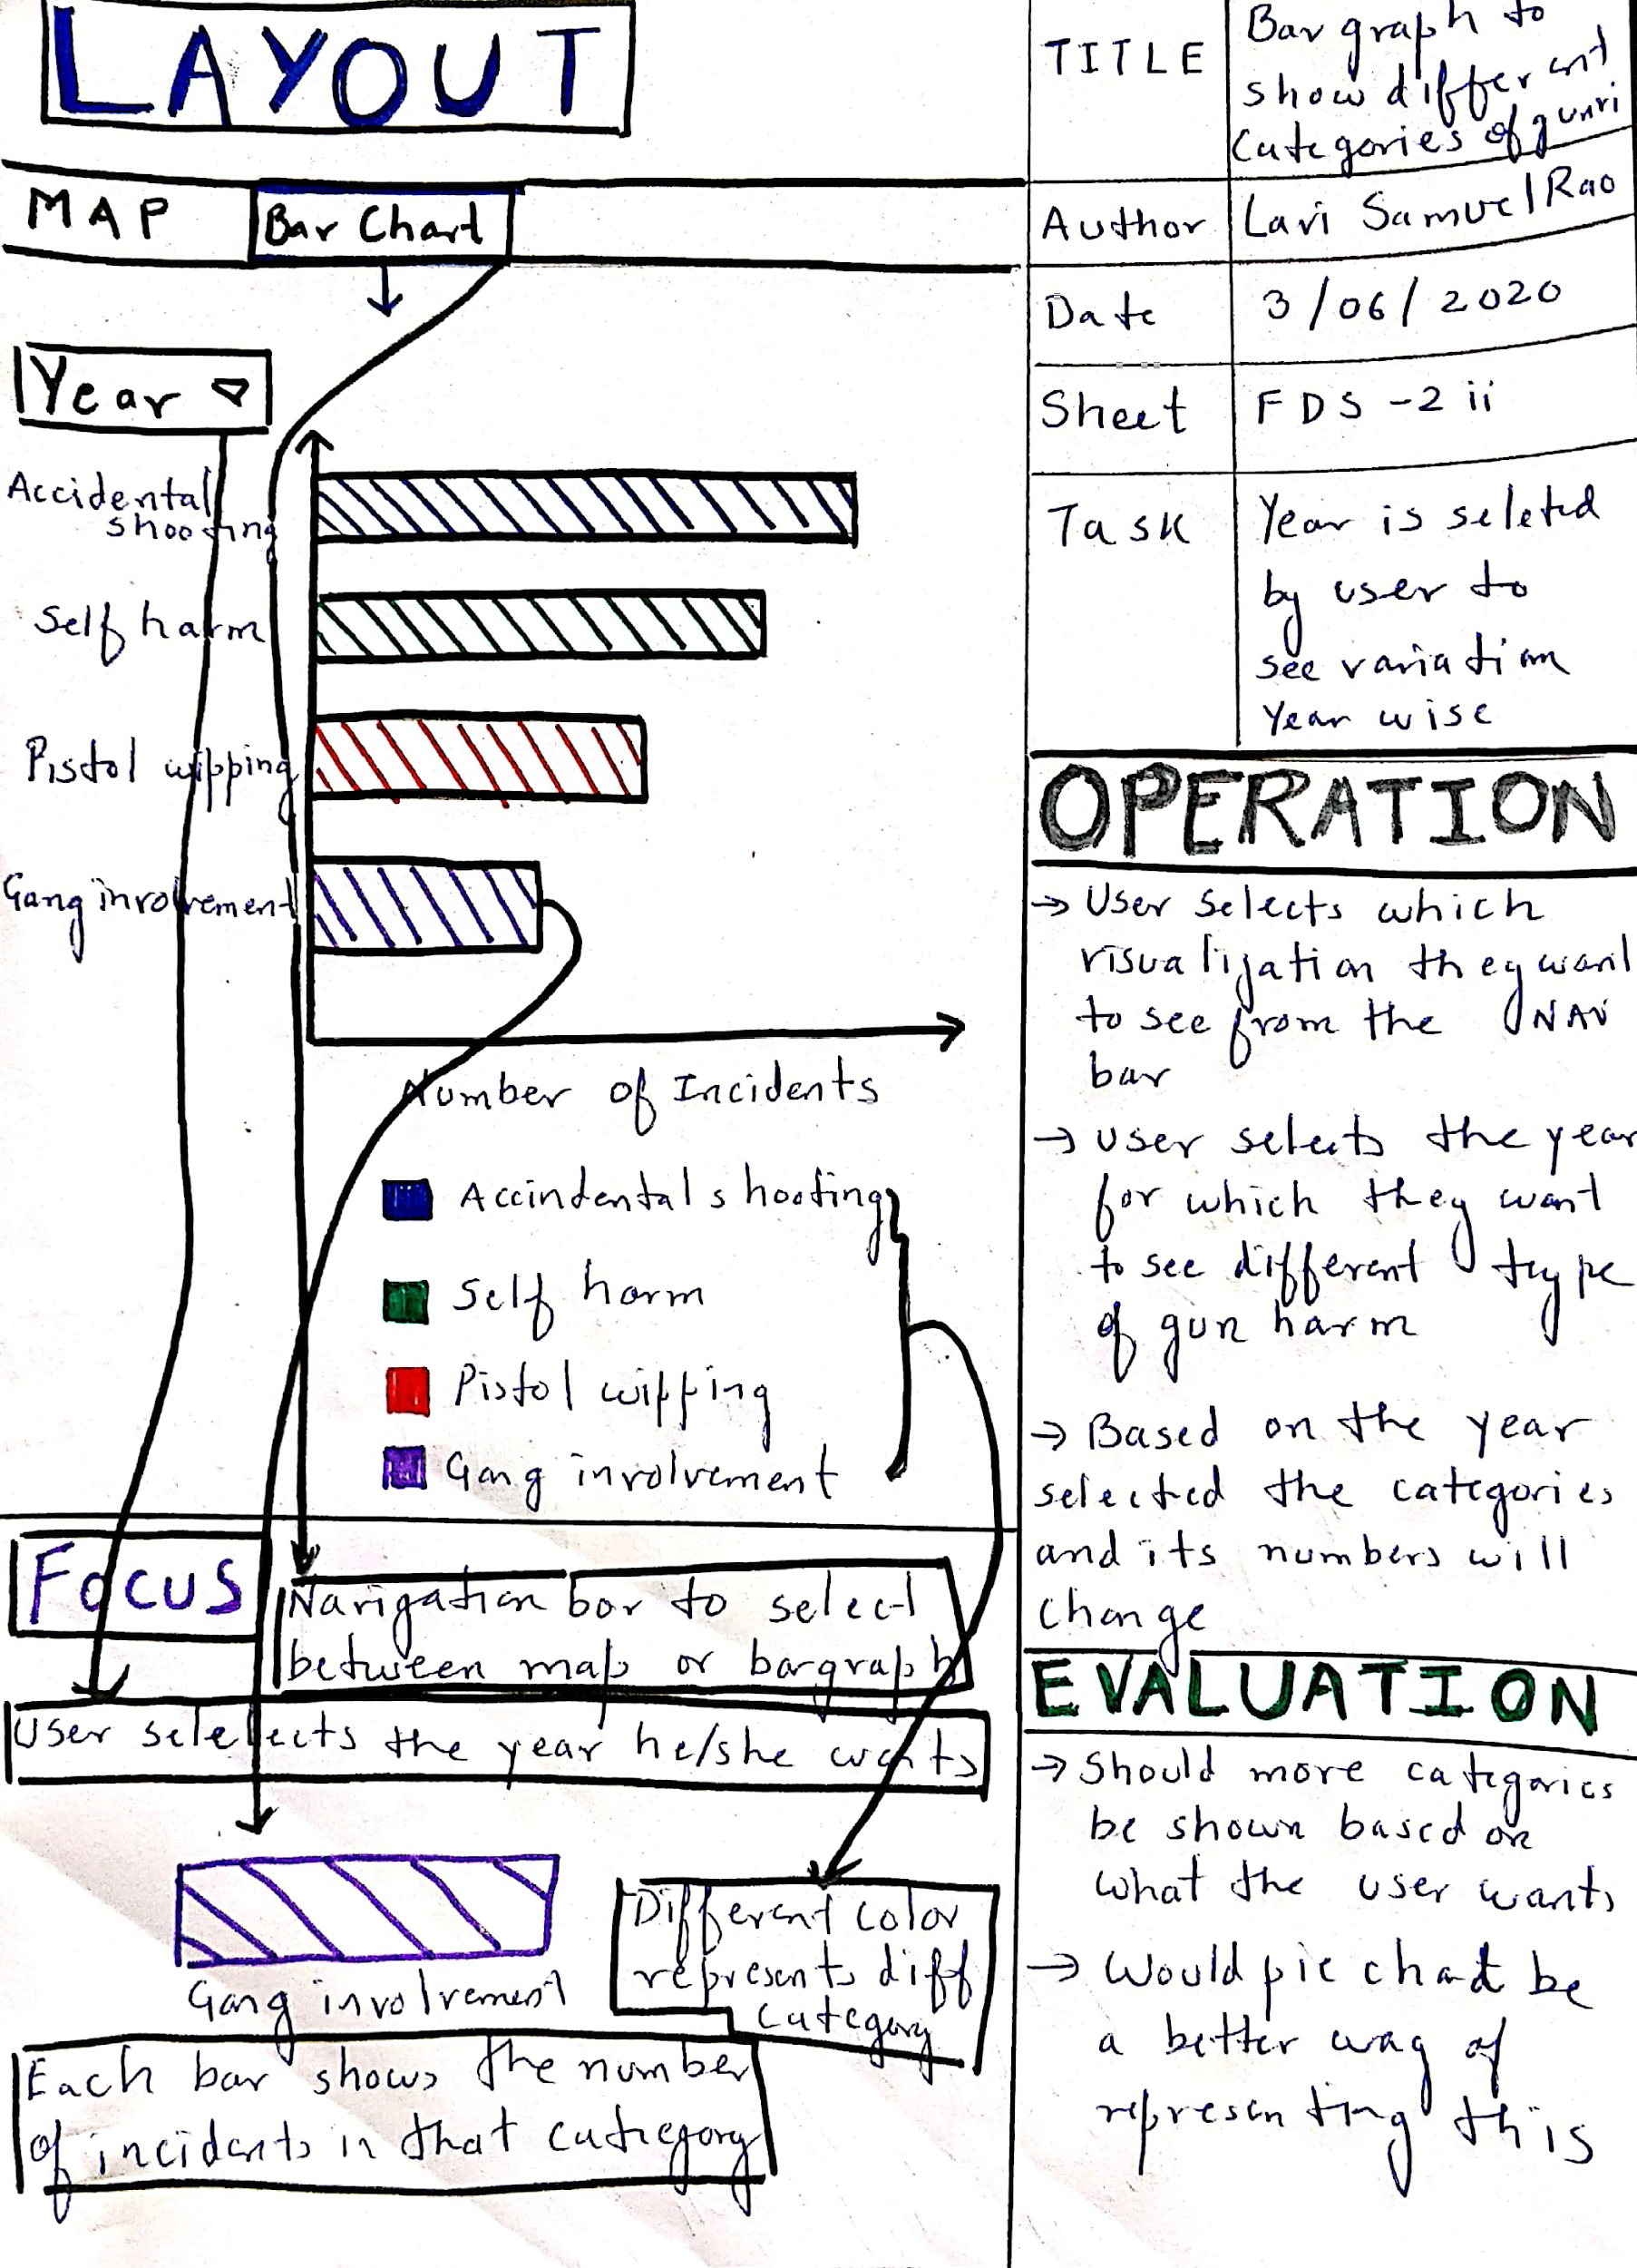 LAYOUT
MAP
Bar Chart
Year
Accidental
shooting
Self harm
Pistol wipping
Gang involvement
Number of Incidents
Accindental shooting
Self harm
Pistol wipping
Gang involvement
FOCUS
Navigation bar to select
between map or bargraph
User selelects the year he/she wants
Gang involvement
Different color
represents diff
category
Each bar shows the number
of incidents in that category
TITLE
Bar graph to
show different
Categories of
Author
Lavi Samuel Rao
Date
3/06/2020
Sheet
FDS-2 ii
Task
Year is seleted
by user to
see variation
Year wise
OPERATION
→ User selects which
visualization they want
to see from the NAV
bar
→ user selects the year
for which they want
to see different type
of gun harm
→ Based on the year
selected the categories
and its numbers will
change
EVALUATION
→ Should more categories
be shown based on
what the user wants
→ Would pie chart be
a better way of
representing this